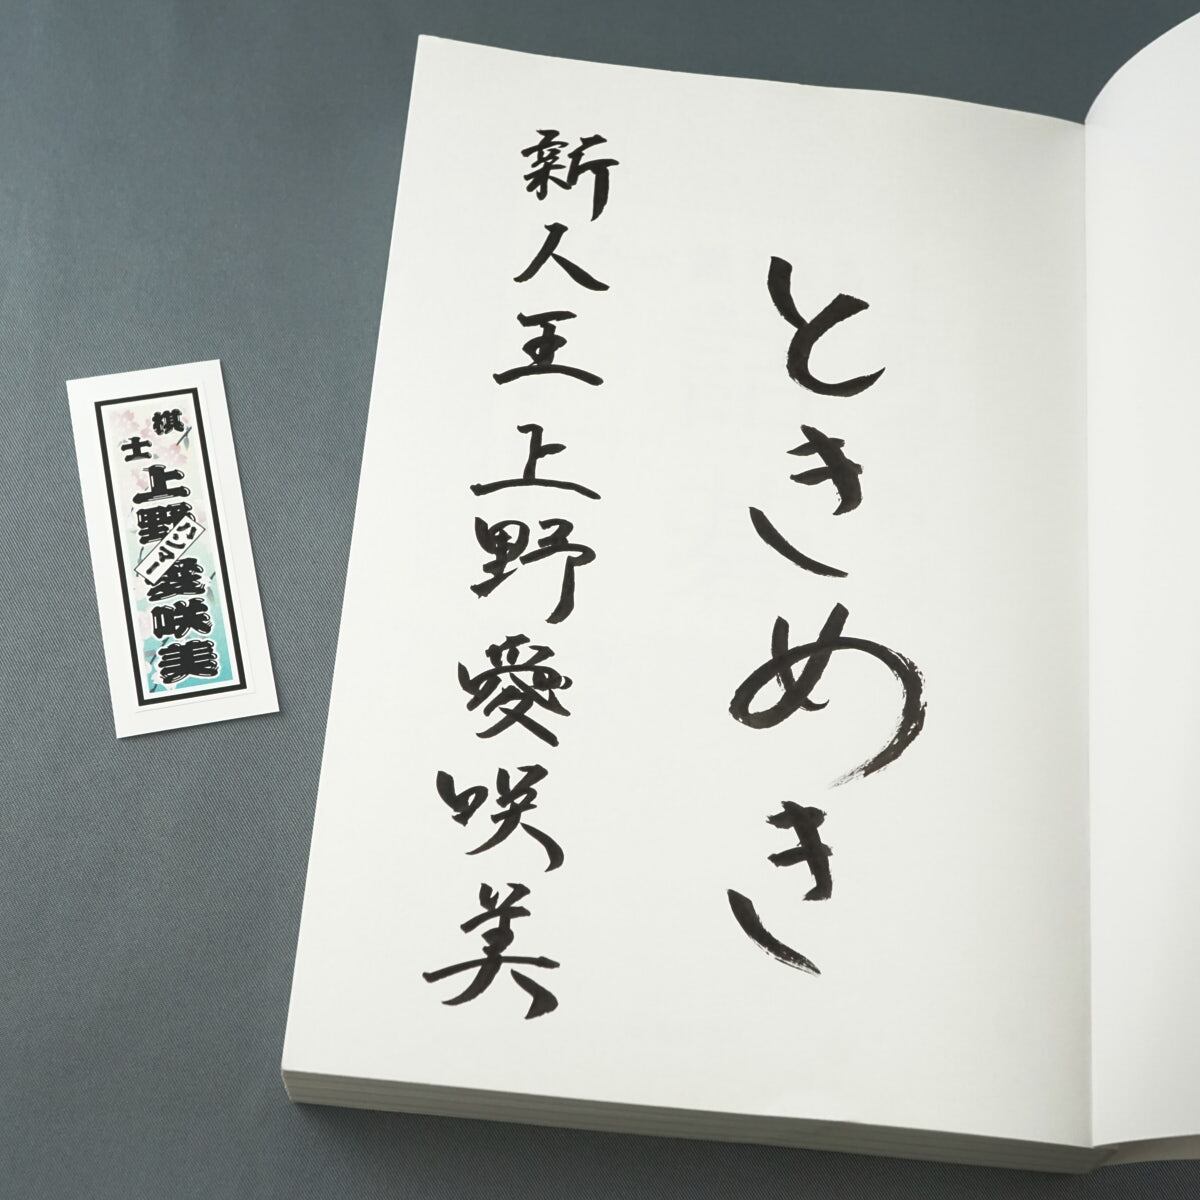 ときめき
新人王 上野愛咲美
棋士
上野愛咲美
ハンマー